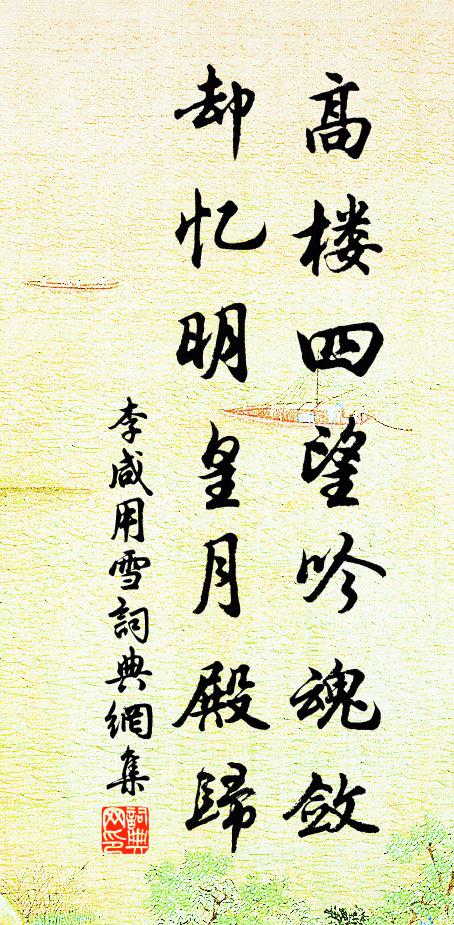 高楼四望吟魂敛
却忆明皇月殿歸
李咸用雪詞典網集
詞典網印